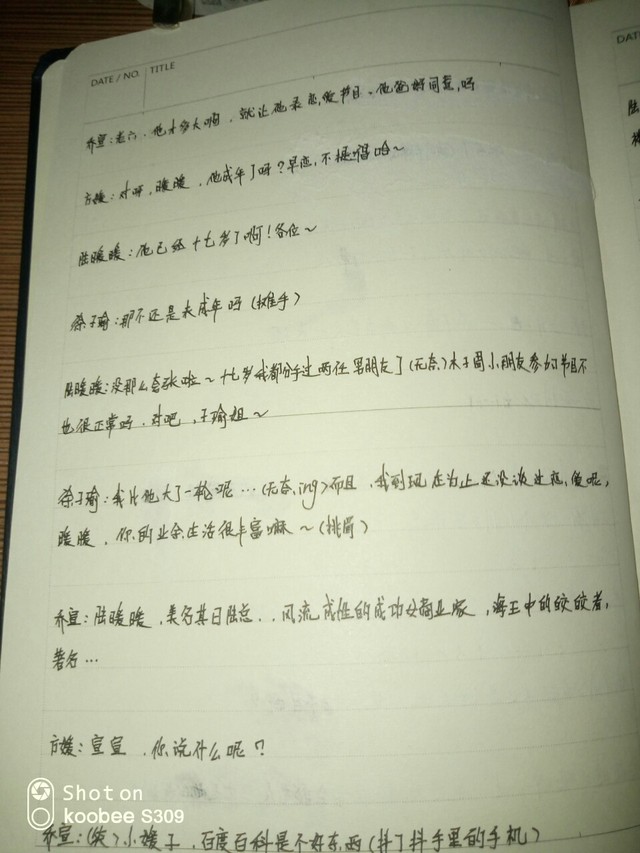 DATE / NO.
TITLE
DATE
乔宣：老六，他才多大啊，就让他来恋爱节目、他爸妈同意吗
方媛：对呀，暖暖，他成年了呀？早恋，不提倡哈～
陆暖暖：他已经十七岁了啊！各位～
徐子瑜：那不还是未成年吗（摊手）
陆暖暖：没那么夸张啦～十七岁我都分手过两任男朋友了（无奈）木子周小朋友参加节目不
也很正常吗，对吧，子瑜姐～
徐子瑜：我比他大了一轮呢…（无奈ing）而且，我到现在为止还没谈过恋爱呢，
暖暖，你的业余生活很丰富嘛～（挑眉）
乔宣：陆暖暖，美名其曰陆总..风流成性的成功女商业家，海王中的佼佼者，
著名…
方媛：宣宣，你说什么呢？
乔宣：（笑）小媛子，百度百科是个好东西（抖了抖手里的手机）
Shot on
koobee S309